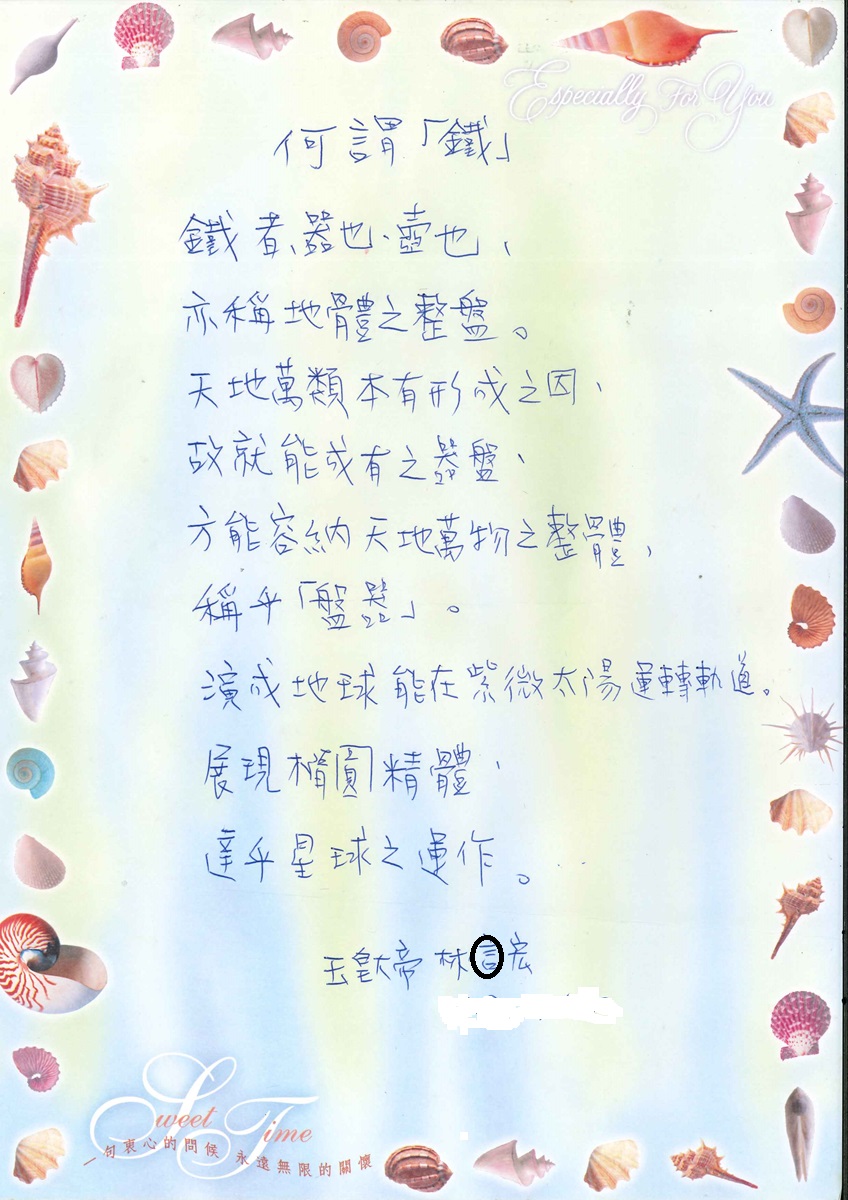 Especially For You
何謂「鐵」
鐵者、器也、壺也、
亦稱地體之整盤。
天地萬類本有形成之因、
故就能成有之器盤、
方能容納天地萬物之整體,
稱乎「盤器」。
演成地球能在紫微太陽運轉軌道。
展現橢圓精體、
達乎星球之運作。
玉皇大帝 林言宏
Sweet Time
一句衷心的問候 永遠無限的關懷